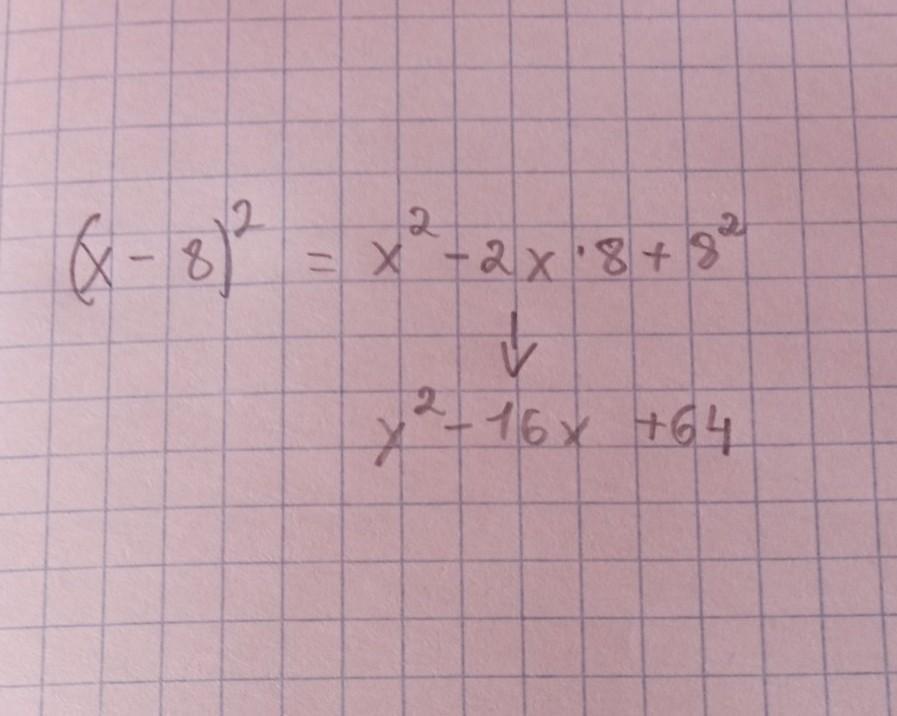 (x - 8)² = x² - 2x · 8 + 8²
↓
x² - 16x + 64